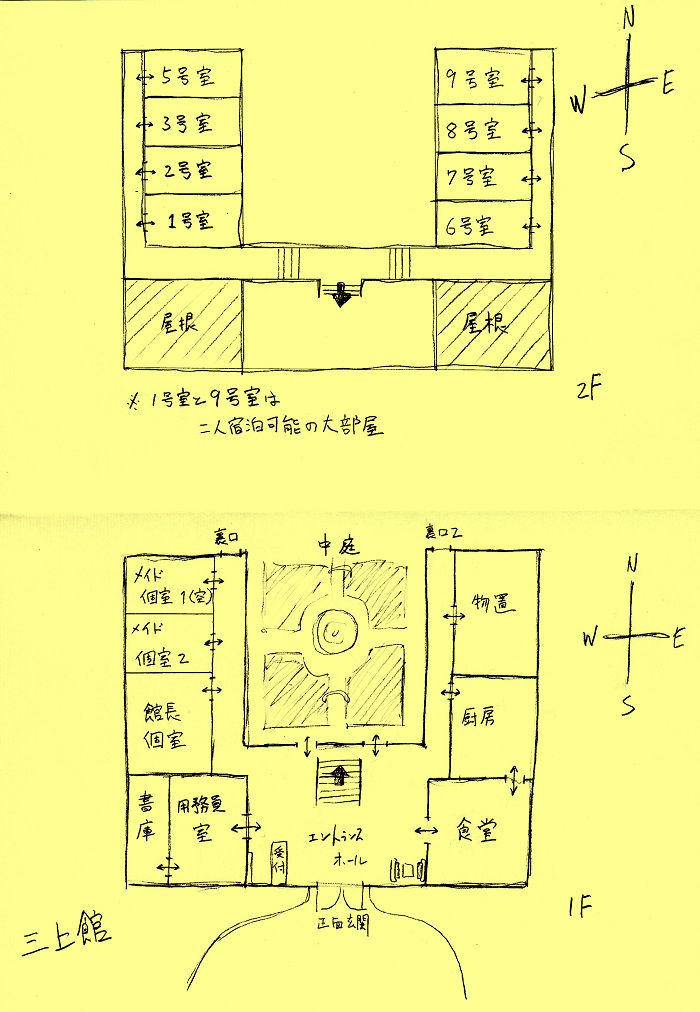 N
W
E
S
5号室
3号室
2号室
1号室
9号室
8号室
7号室
6号室
屋根
屋根
2F
※ 1号室と9号室は
二人宿泊可能の大部屋
裏口
中庭
裏口2
N
W
E
S
メイド
個室1(空)
メイド
個室2
館長
個室
書庫
用務員
室
物置
厨房
食堂
受付
エントランス
ホール
正面玄関
1F
三上館